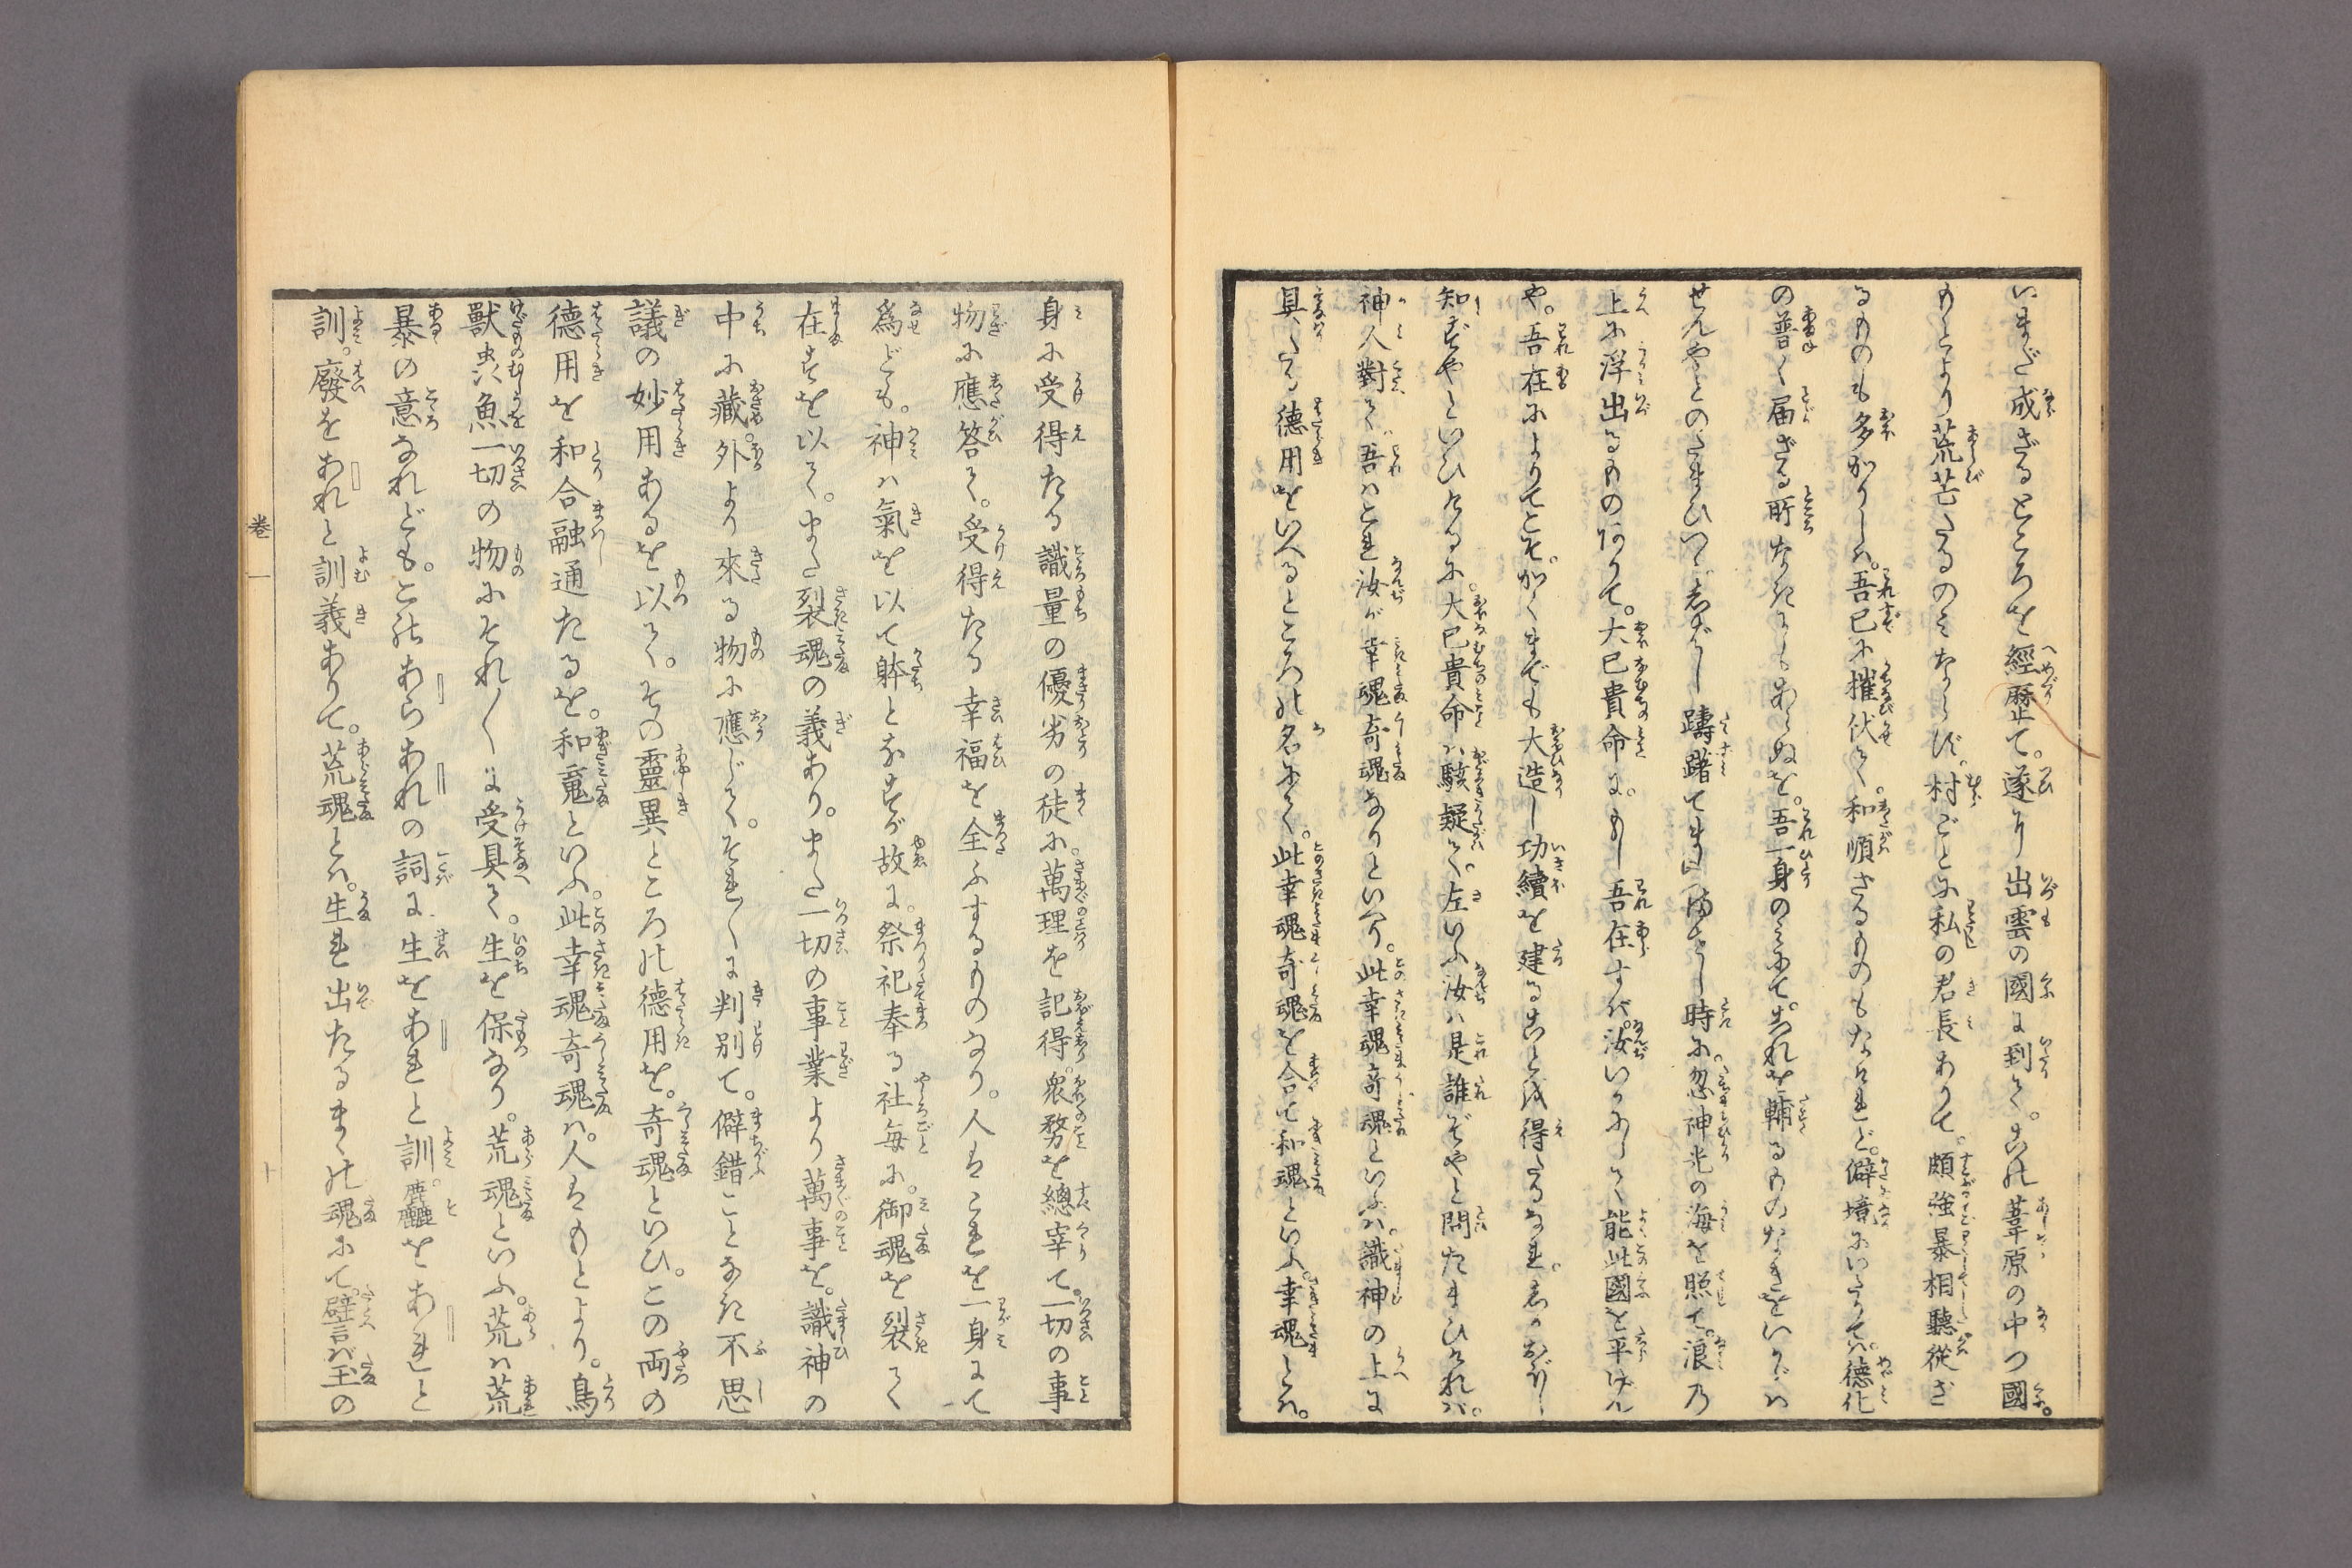 いまだ成ざるところを經歷て。遂に出雲の國に到て。此葦原の中つ國。
もとより荒芒たるのみならず。村ごとに私の君長ありて。頗強暴相聽從ざ
るものも多かりしが。吾已に摧伏て。和順ざるものもなけれど。僻境にいたりては。德化
の普く届ざる所なきにしもあらぬを。吾一身のみにて。これを輔るものなきをいかゞは
せんやとのたまひつゝ。しばし躊躇てましましゝ時に。忽神光の海を照て。浪乃
上に浮出るものありて。大已貴命に。もし吾在ずば。汝いかにして能此國を平けん
や。吾在によりてこそ。かくまでも大造し功績を建ることを得たるなれ。しかおぼし
知ずやといひけるに。大已貴命は駭疑て。左いふ汝は是誰ぞやと問たまひければ。
神人對て。吾はこれ汝が幸魂奇魂なりといへり。此幸魂奇魂といふは。識神の上に
具たる德用をいへるところの名にて。此幸魂奇魂を合て和魂といふ。幸魂とは。
身に受得たる識量の優劣の徒に。萬理を記得。衆務を總宰て。一切の事
物に應答て。受得たる幸福を全ふするものなり。人はこれを一身にて
爲ども。神は氣を以て躰となすが故に。祭祀奉る社毎に。御魂を裂て
在すを以て。また裂魂の義あり。また一切の事業より萬事を。識神の
中に藏。外より來る物に應じて。それ〳〵に判別て。僻錯ことなき不思
議の妙用あるを以て。その靈異ところの德用を。奇魂といひ。この両の
德用を和合融通たるを。和魂といふ。此幸魂奇魂は。人はもとより。鳥
獸虫魚一切の物にそれ〳〵に受具て。生を保なり。荒魂といふ。荒は荒
暴の意なれども。このあらあれの詞に生をあれと訓。麤をあれと
訓。廢をあれと訓義ありて。荒魂とは。生れ出たるまゝの魂にて。譬ば玉の
卷一